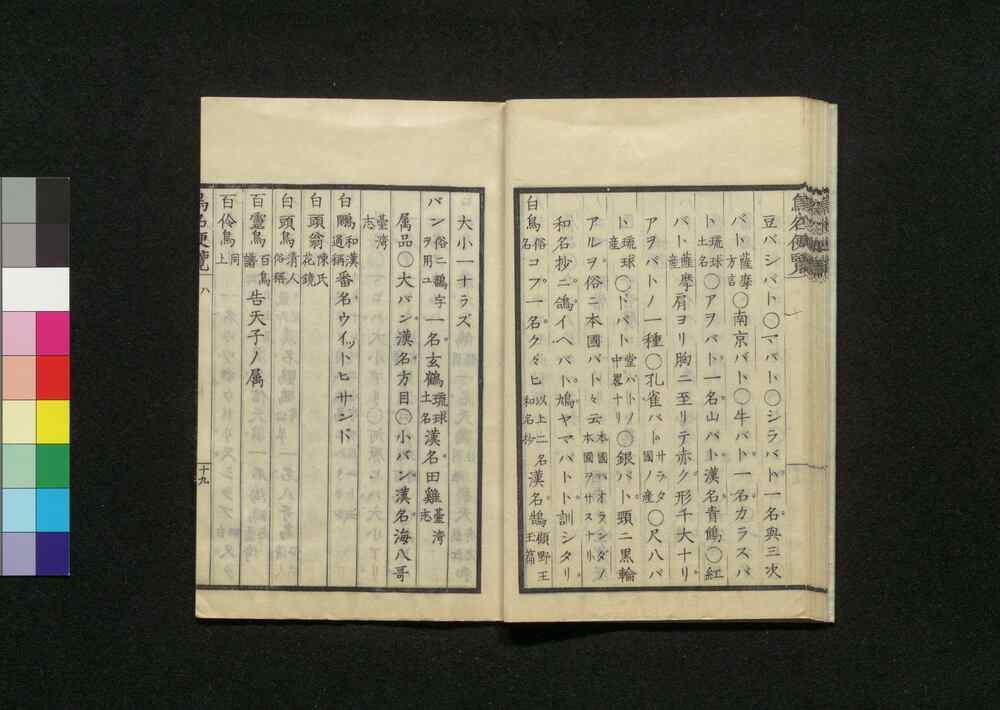 鳥名便覧
豆バシバト〇マバト〇シラバト一名與三次
バト薩摩方言〇南京バト〇牛バト一名カラスバ
ト琉球土名〇アヲバト一名山バト漢名青鳩〇紅
バト薩摩産肩ヨリ胸ニ至リテ赤ク形チ大十リ
アヲバトノ一種〇孔雀バトサラタ國ノ産〇尺八バ
ト琉球産〇ドバト堂バトノ中畧ナリ〇銀バト頸ニ黒輪
アルヲ俗ニ本國バトト云本國ハオランダノ本國ヲサスナリ
和名抄ニ鴿イヘバト鳩ヤマバトト訓シタリ
白鳥俗名コフ一名クヽヒ以上二名和名抄漢名鵠顧野王玉篇
大小一十ラズ
バン俗ニ鷭字ヲ用ユ一名玄鶴琉球土名漢名田雞臺湾志
属品〇大バン漢名方目〇小バン漢名海八哥
臺湾志
白鷳和漢通稱番名ウイットヒサンド
白頭翁陳氏花鏡
白頭鳥清人俗稱
百靈鳥百鳥譜告天子ノ属
百伶鳥同上
鳥名便覧 八
十九